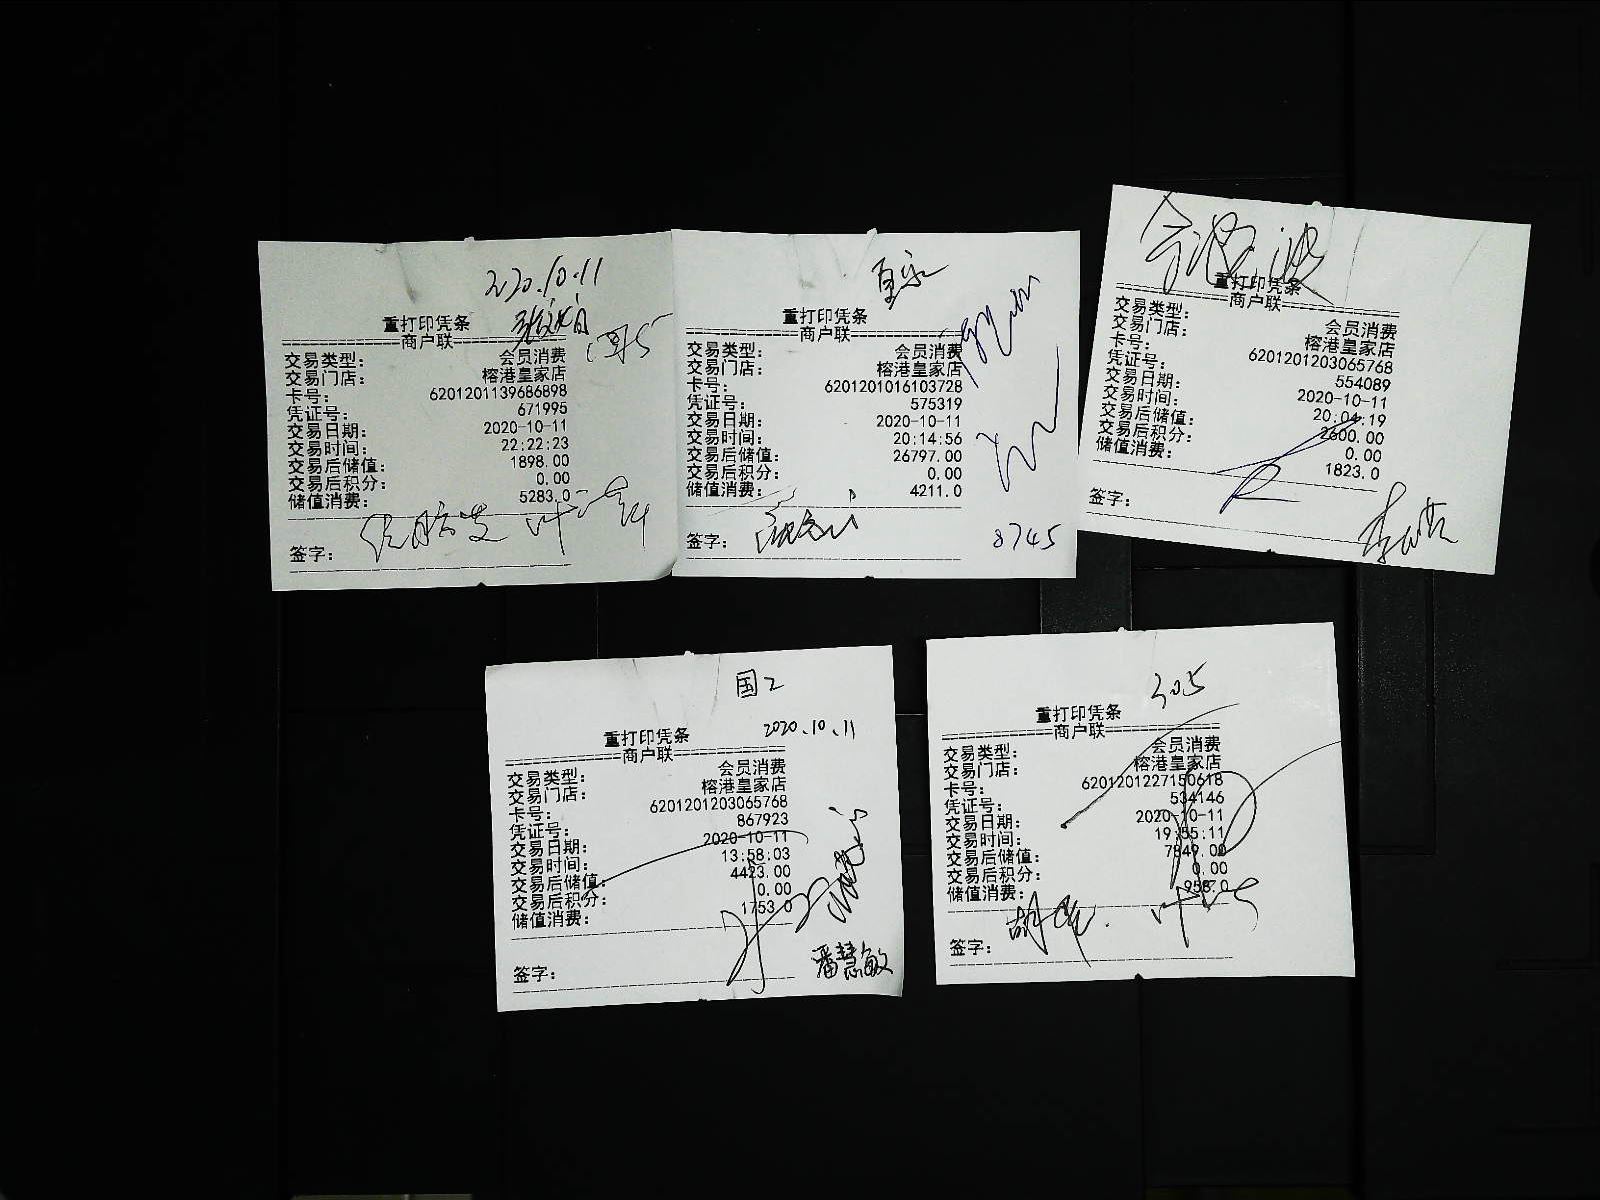 2020.10.11
重打印凭条
商户联
交易类型: 会员消费
交易门店: 榕港皇家店
卡号: 6201201139686898
凭证号: 671995
交易日期: 2020-10-11
交易时间: 22:22:23
交易后储值: 1898.00
交易后积分: 0.00
储值消费: 5283.0
签字:
重打印凭条
商户联
交易类型: 会员消费
交易门店: 榕港皇家店
卡号: 6201201016103728
凭证号: 575319
交易日期: 2020-10-11
交易时间: 20:14:56
交易后储值: 26797.00
交易后积分: 0.00
储值消费: 4211.0
签字:
8745
重打印凭条
商户联
交易类型: 会员消费
交易门店: 榕港皇家店
卡号: 6201201203065768
凭证号: 554089
交易日期: 2020-10-11
交易时间: 20:04:19
交易后储值: 2600.00
交易后积分: 0.00
储值消费: 1823.0
签字:
国2
2020.10.11
重打印凭条
商户联
交易类型: 会员消费
交易门店: 榕港皇家店
卡号: 6201201203065768
凭证号: 867923
交易日期: 2020-10-11
交易时间: 13:58:03
交易后储值: 4423.00
交易后积分: 0.00
储值消费: 1753.0
签字:
潘慧敏
305
重打印凭条
商户联
交易类型: 会员消费
交易门店: 榕港皇家店
卡号: 6201201227150618
凭证号: 534146
交易日期: 2020-10-11
交易时间: 19:55:11
交易后储值: 7849.00
交易后积分: 0.00
储值消费: 958.0
签字: